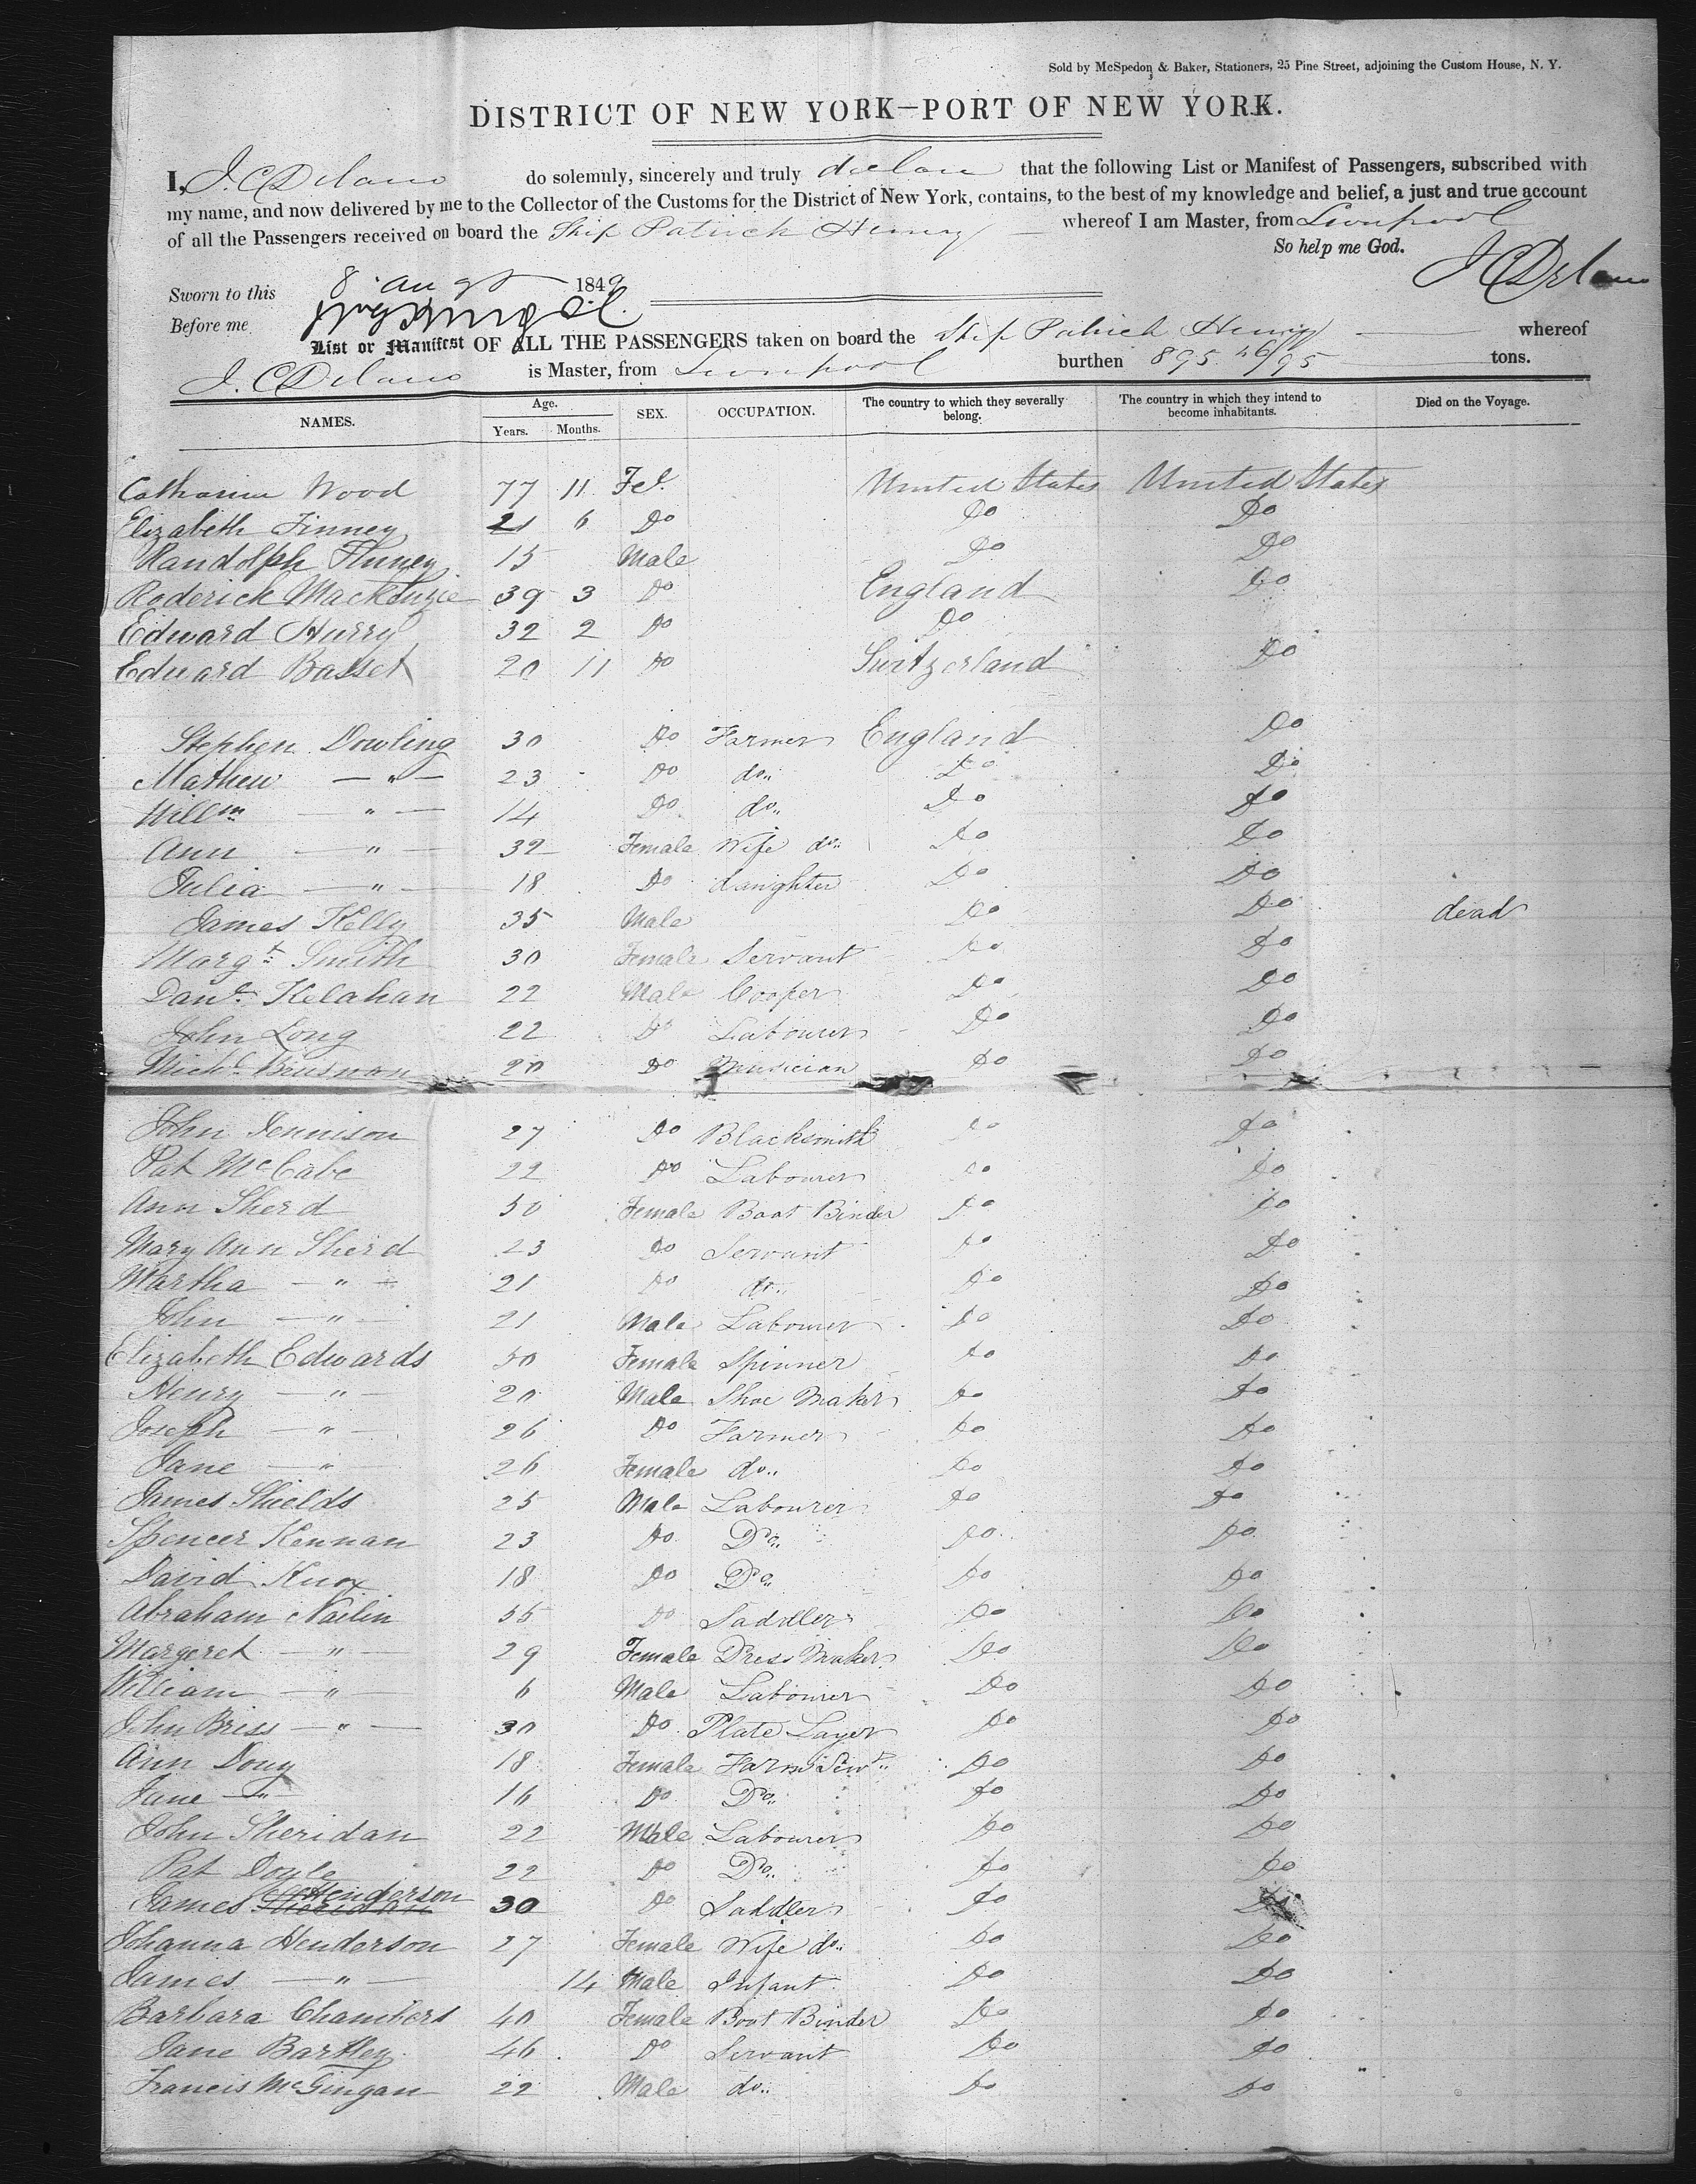 Sold by McSpedon & Baker, Stationers, 25 Pine Street, adjoining the Custom House, N. Y.
DISTRICT OF NEW YORK—PORT OF NEW YORK.
I, J. C Delano do solemnly, sincerely and truly declare that the following List or Manifest of Passengers, subscribed with
my name, and now delivered by me to the Collector of the Customs for the District of New York, contains, to the best of my knowledge and belief, a just and true account
of all the Passengers received on board the Ship Patrick Henry whereof I am Master, from Liverpool
So help me God.
J C Delano
Sworn to this 8 Augt 1849
Before me
List or Manifest OF ALL THE PASSENGERS taken on board the Ship Patrick Henry whereof
J. C Delano is Master, from Liverpool burthen 895 46/95 tons.
NAMES. Age. Years. Months. SEX. OCCUPATION. The country to which they severally belong. The country in which they intend to become inhabitants. Died on the Voyage.
Catharine Wood 77 11 Fel. United States United States
Elizabeth Finney 21 6 Do Do Do
Randolph Finney 15 Male Do Do
Roderick Mackenzie 39 3 Do England Do
Edward Hurry 32 2 Do Do
Edward Basset 20 11 Do Switzerland Do
Stephen Dowling 30 Do Farmer England Do
Mathew — " — 23 Do do Do Do
Willm — " — 14 Do do Do Do
Ann — " — 32 Female Wife do Do Do
Julia — " — 18 Do daughter Do Do
James Kelly 35 Male Do Do dead
Margt Smith 30 Female Servant Do Do
Danl Kelahan 22 Male Cooper Do Do
John Long 22 Do Labourer Do Do
Michl 20 Do Musician Do Do
John Dennison 27 Do Blacksmith Do Do
Pat McCabe 22 Do Labourer Do Do
Ann Sherd 50 Female Boot Binder Do Do
Mary Ann Sherd 23 Do Servant Do Do
Martha — " — 21 Do do Do Do
John — " — 21 Male Labourer Do Do
Elizabeth Edwards 50 Female Spinner Do Do
Henry — " — 20 Male Shoe Maker Do Do
Joseph — " — 26 Do Farmer Do Do
Jane — " — 26 Female do Do Do
James Shields 25 Male Labourer Do Do
Spencer Kennan 23 Do Do Do Do
David Knox 18 Do Do Do Do
Abraham Nailin 55 Do Saddler Do Do
Margeret — " — 29 Female Dress Maker Do Do
William — " — 6 Male Labourer Do Do
John Briss — " — 30 Do Plate Layer Do Do
Ann Douy 18 Female Farm Servt Do Do
Jane — " — 16 Do Do Do Do
John Sheridan 22 Male Labourer Do Do
Pat Doyle 22 Do Do Do Do
James Sheridan Henderson 30 Do Saddler Do Do
Johanna Henderson 27 Female Wife do Do Do
James — " — 14 Male Infant Do Do
Barbara Chambers 40 Female Boot Binder Do Do
Jane Bartley 46 Do Servant Do Do
Francis McGingan 22 Male do Do Do